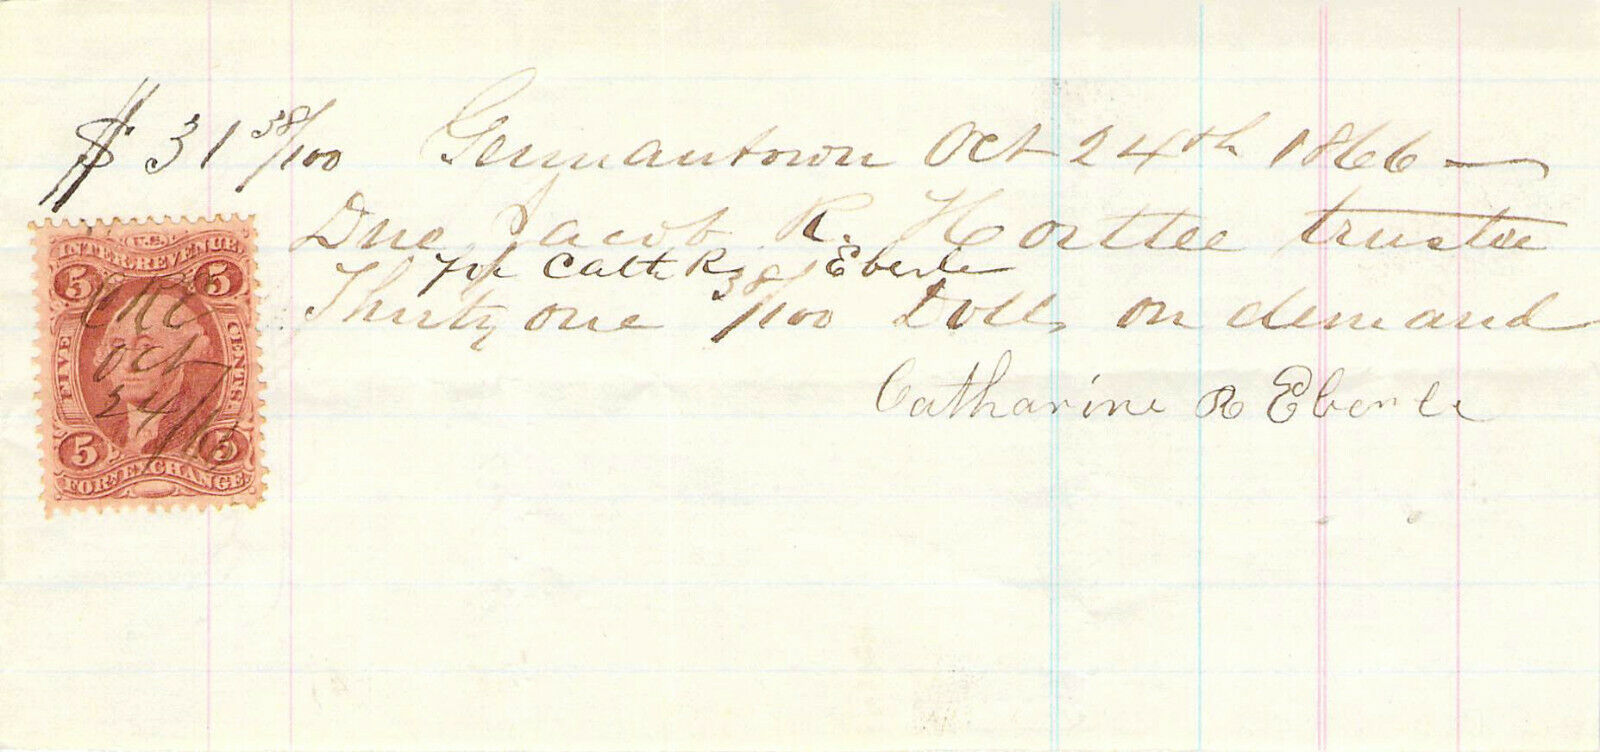 $ 31 38/100 Germantown Oct 24th 1866 —
Due Jacob R. Hosttee trustee
for Cath R Eberle
Thirty one 38/100 Dolls on demand
Catharine R Eberle
U.S.
INTER. REVENUE
5 5
FIVE CENTS.
CRE
Oct
24/66
5 5
FOR. EXCHANGE.